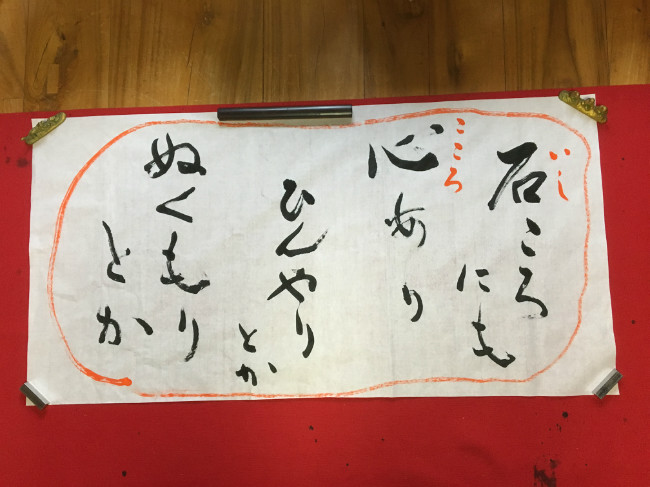 石ころ
にも
心あり
ひんやり
とか
ぬくもり
とか
いし
こころ